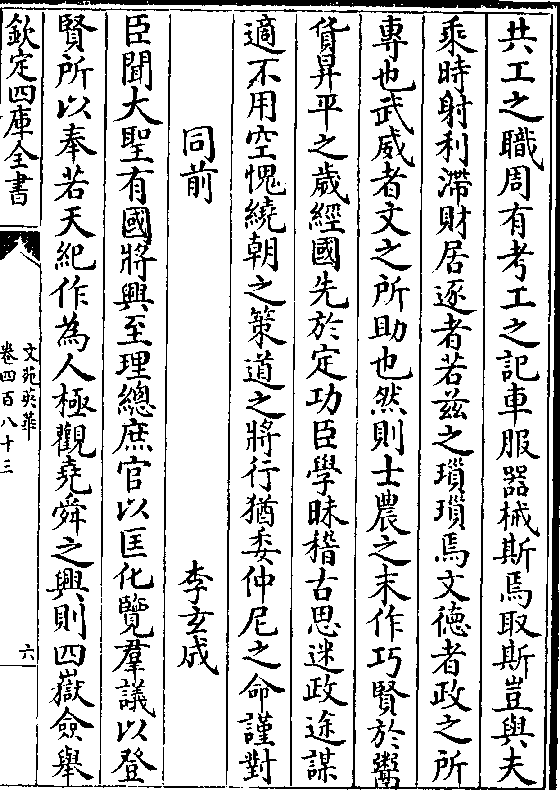 共工之職周有考工之記車服器械斯焉取斯豈與夫
乘時射利滯財居逐者若兹之瑣瑣焉文德者政之所
專也武威者文之所助也然則士農之末作巧賢於鬻
貨昇平之歲經國先於定功臣學昧稽古思迷政途謀
適不用空愧繞朝之策道之將行猶委仲尼之命謹對
同前 李玄成
臣聞大聖有國將興至理總庶官以匡化覽羣議以登
賢所以奉若天紀作為人極觀堯舜之興則四嶽僉舉
欽定四庫全書
文苑英華
卷四百八十三
六